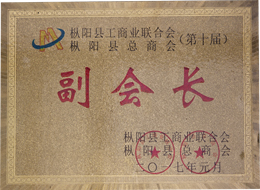 枞阳县工商业联合会
枞阳县总商会
(第十届)
副会长
枞阳县工商业联合会
枞阳县总商会
二〇一七年元月